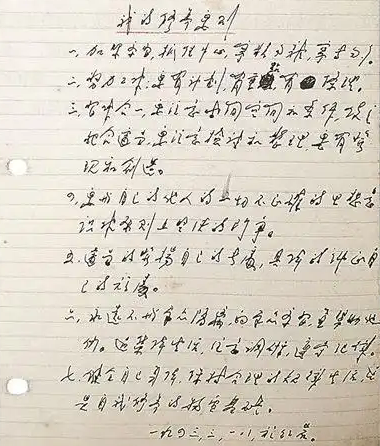 我的修养要则
一、加紧学习，抓住中心，宁精勿杂，宁专勿多。
二、努力工作，要有计划，有重点，有条理。
三、习作合一，要注意时间空间和条件，使之
配合适当，要注意检讨和整理，要有发
现和创造。
四、要与自己的他人的一切不正确的思想意
识作原则上坚决的斗争。
五、适当的发扬自己的长处，具体的纠正自
己的短处。
六、永远不与群众隔离，向群众学习，并帮助他
们。过集体生活，注意调研，遵守纪律。
七、健全自己身体，保持合理的规律生活，这
是自我修养的物质基础。
一九四三，三，一八，于红岩。